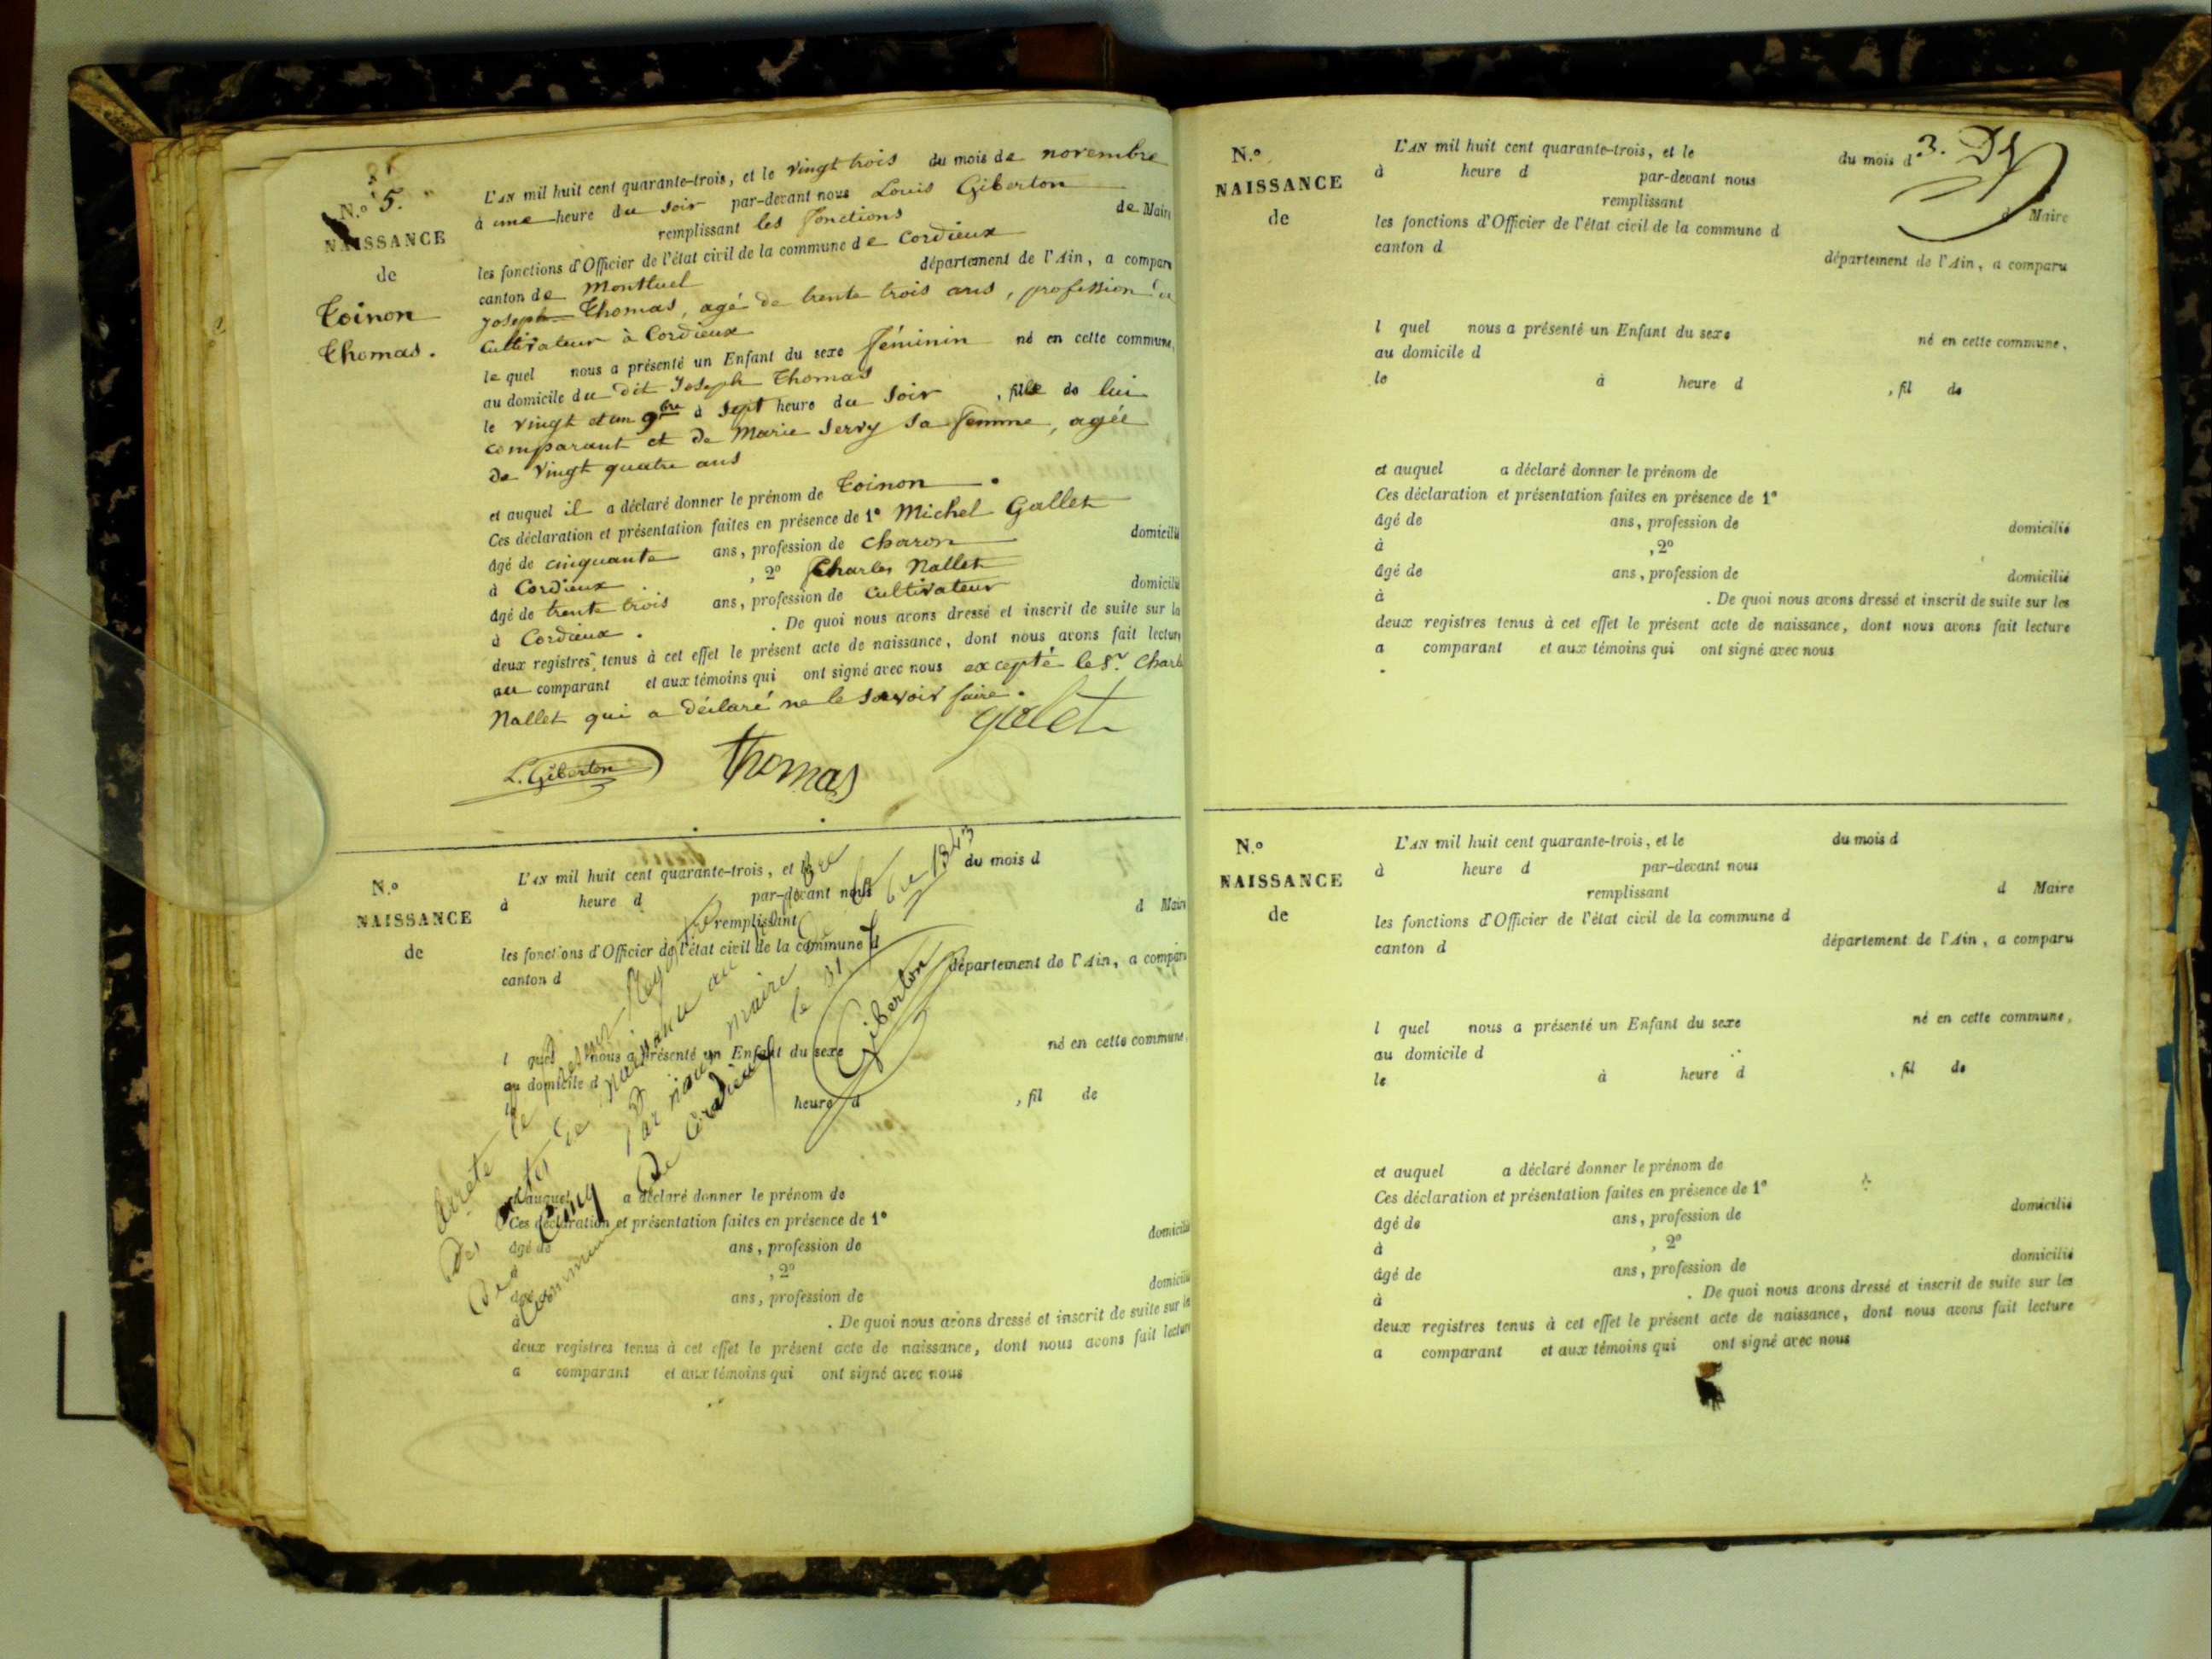 N.º 5.
NAISSANCE
de
Toinon
Thomas.
L'AN mil huit cent quarante-trois, et le vingt trois du mois de novembre
à une heure du soir par-devant nous Louis Giberton
remplissant les fonctions de Maire
les fonctions d'Officier de l'état civil de la commune de Cordieux
canton de Montluel département de l'Ain, a comparu
Joseph Thomas, agé de trente trois ans, profession de
Cultivateur à Cordieux
le quel nous a présenté un Enfant du sexe féminin né en cette commune,
au domicile du dit Joseph Thomas
le vingt et un 9bre à sept heure du soir, fille de lui
comparant et de Marie Servy sa femme, agée
de vingt quatre ans
et auquel il a déclaré donner le prénom de Toinon.
Ces déclaration et présentation faites en présence de 1º Michel Gallet
âgé de cinquante ans, profession de Charon domicilié
à Cordieux, 2º Charles Nallet
âgé de trente trois ans, profession de Cultivateur domicilié
à Cordieux. De quoi nous avons dressé et inscrit de suite sur les
deux registres tenus à cet effet le présent acte de naissance, dont nous avons fait lecture
au comparant et aux témoins qui ont signé avec nous excepté le Sr. Charles
Nallet qui a déclaré ne le savoir faire.
galet
L. Giberton Thomas
N.º
NAISSANCE
de
L'AN mil huit cent quarante-trois, et le du mois d
à heure d par-devant nous
remplissant d Maire
les fonctions d'Officier de l'état civil de la commune d
canton d département de l'Ain, a comparu
l quel nous a présenté un Enfant du sexe né en cette commune,
au domicile d
le heure d, fil de
et auquel a déclaré donner le prénom de
Ces déclaration et présentation faites en présence de 1º
âgé de ans, profession de domicilié
à, 2º
âgé de ans, profession de domicilié
à. De quoi nous avons dressé et inscrit de suite sur les
deux registres tenus à cet effet le présent acte de naissance, dont nous avons fait lecture
a comparant et aux témoins qui ont signé avec nous
Arrêté le présent Registre
des actes de naissance au
de cinq par nous maire de la
Commune de Cordieux le 31 1843
Giberton
3.
N.º
NAISSANCE
de
L'AN mil huit cent quarante-trois, et le du mois d
à heure d par-devant nous
remplissant d Maire
les fonctions d'Officier de l'état civil de la commune d
canton d département de l'Ain, a comparu
l quel nous a présenté un Enfant du sexe né en cette commune,
au domicile d
le à heure d, fil de
et auquel a déclaré donner le prénom de
Ces déclaration et présentation faites en présence de 1º
âgé de ans, profession de domicilié
à, 2º
âgé de ans, profession de domicilié
à. De quoi nous avons dressé et inscrit de suite sur les
deux registres tenus à cet effet le présent acte de naissance, dont nous avons fait lecture
a comparant et aux témoins qui ont signé avec nous
N.º
NAISSANCE
de
L'AN mil huit cent quarante-trois, et le du mois d
à heure d par-devant nous
remplissant d Maire
les fonctions d'Officier de l'état civil de la commune d
canton d département de l'Ain, a comparu
l quel nous a présenté un Enfant du sexe né en cette commune,
au domicile d
le à heure d, fil de
et auquel a déclaré donner le prénom de
Ces déclaration et présentation faites en présence de 1º
âgé de ans, profession de domicilié
à, 2º
âgé de ans, profession de domicilié
à. De quoi nous avons dressé et inscrit de suite sur les
deux registres tenus à cet effet le présent acte de naissance, dont nous avons fait lecture
a comparant et aux témoins qui ont signé avec nous